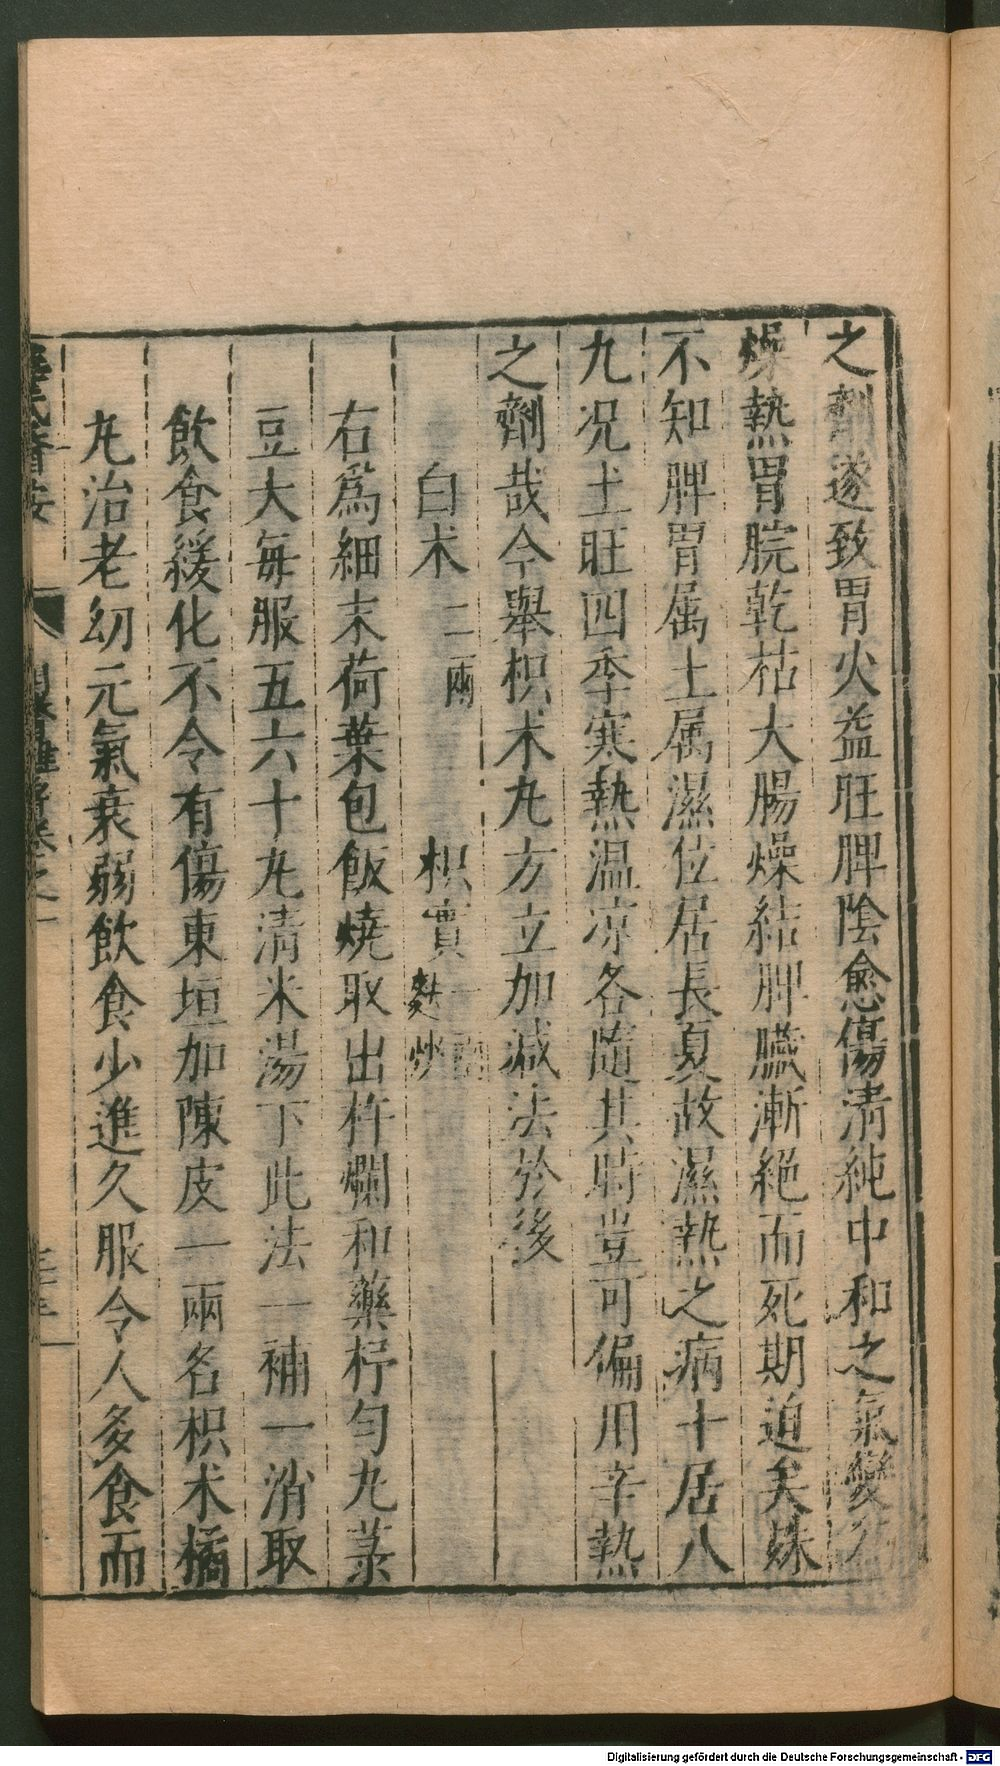 之劑遂致胃火益旺脾陰愈傷清純中和之氣變為
燥熱胃脘乾枯大腸燥結脾臟漸絕而死期迫矣殊
不知脾胃属土属濕位居長夏故濕熱之病十居八
九况土旺四季寒熱温凉各隨其時豈可偏用辛熱
之劑哉今舉枳术丸方立加减法於後
白术二兩 枳實一兩麩炒
右為細末荷葉包飯燒取出杵爛和藥杼勻丸菉
豆大每服五六十丸清米湯下此法一補一消取
飲食緩化不令有傷東垣加陳皮一兩名枳术橘
丸治老幼元氣衰弱飲食少進久服令人多食而
Digitalisierung gefördert durch die Deutsche Forschungsgemeinschaft - DFG